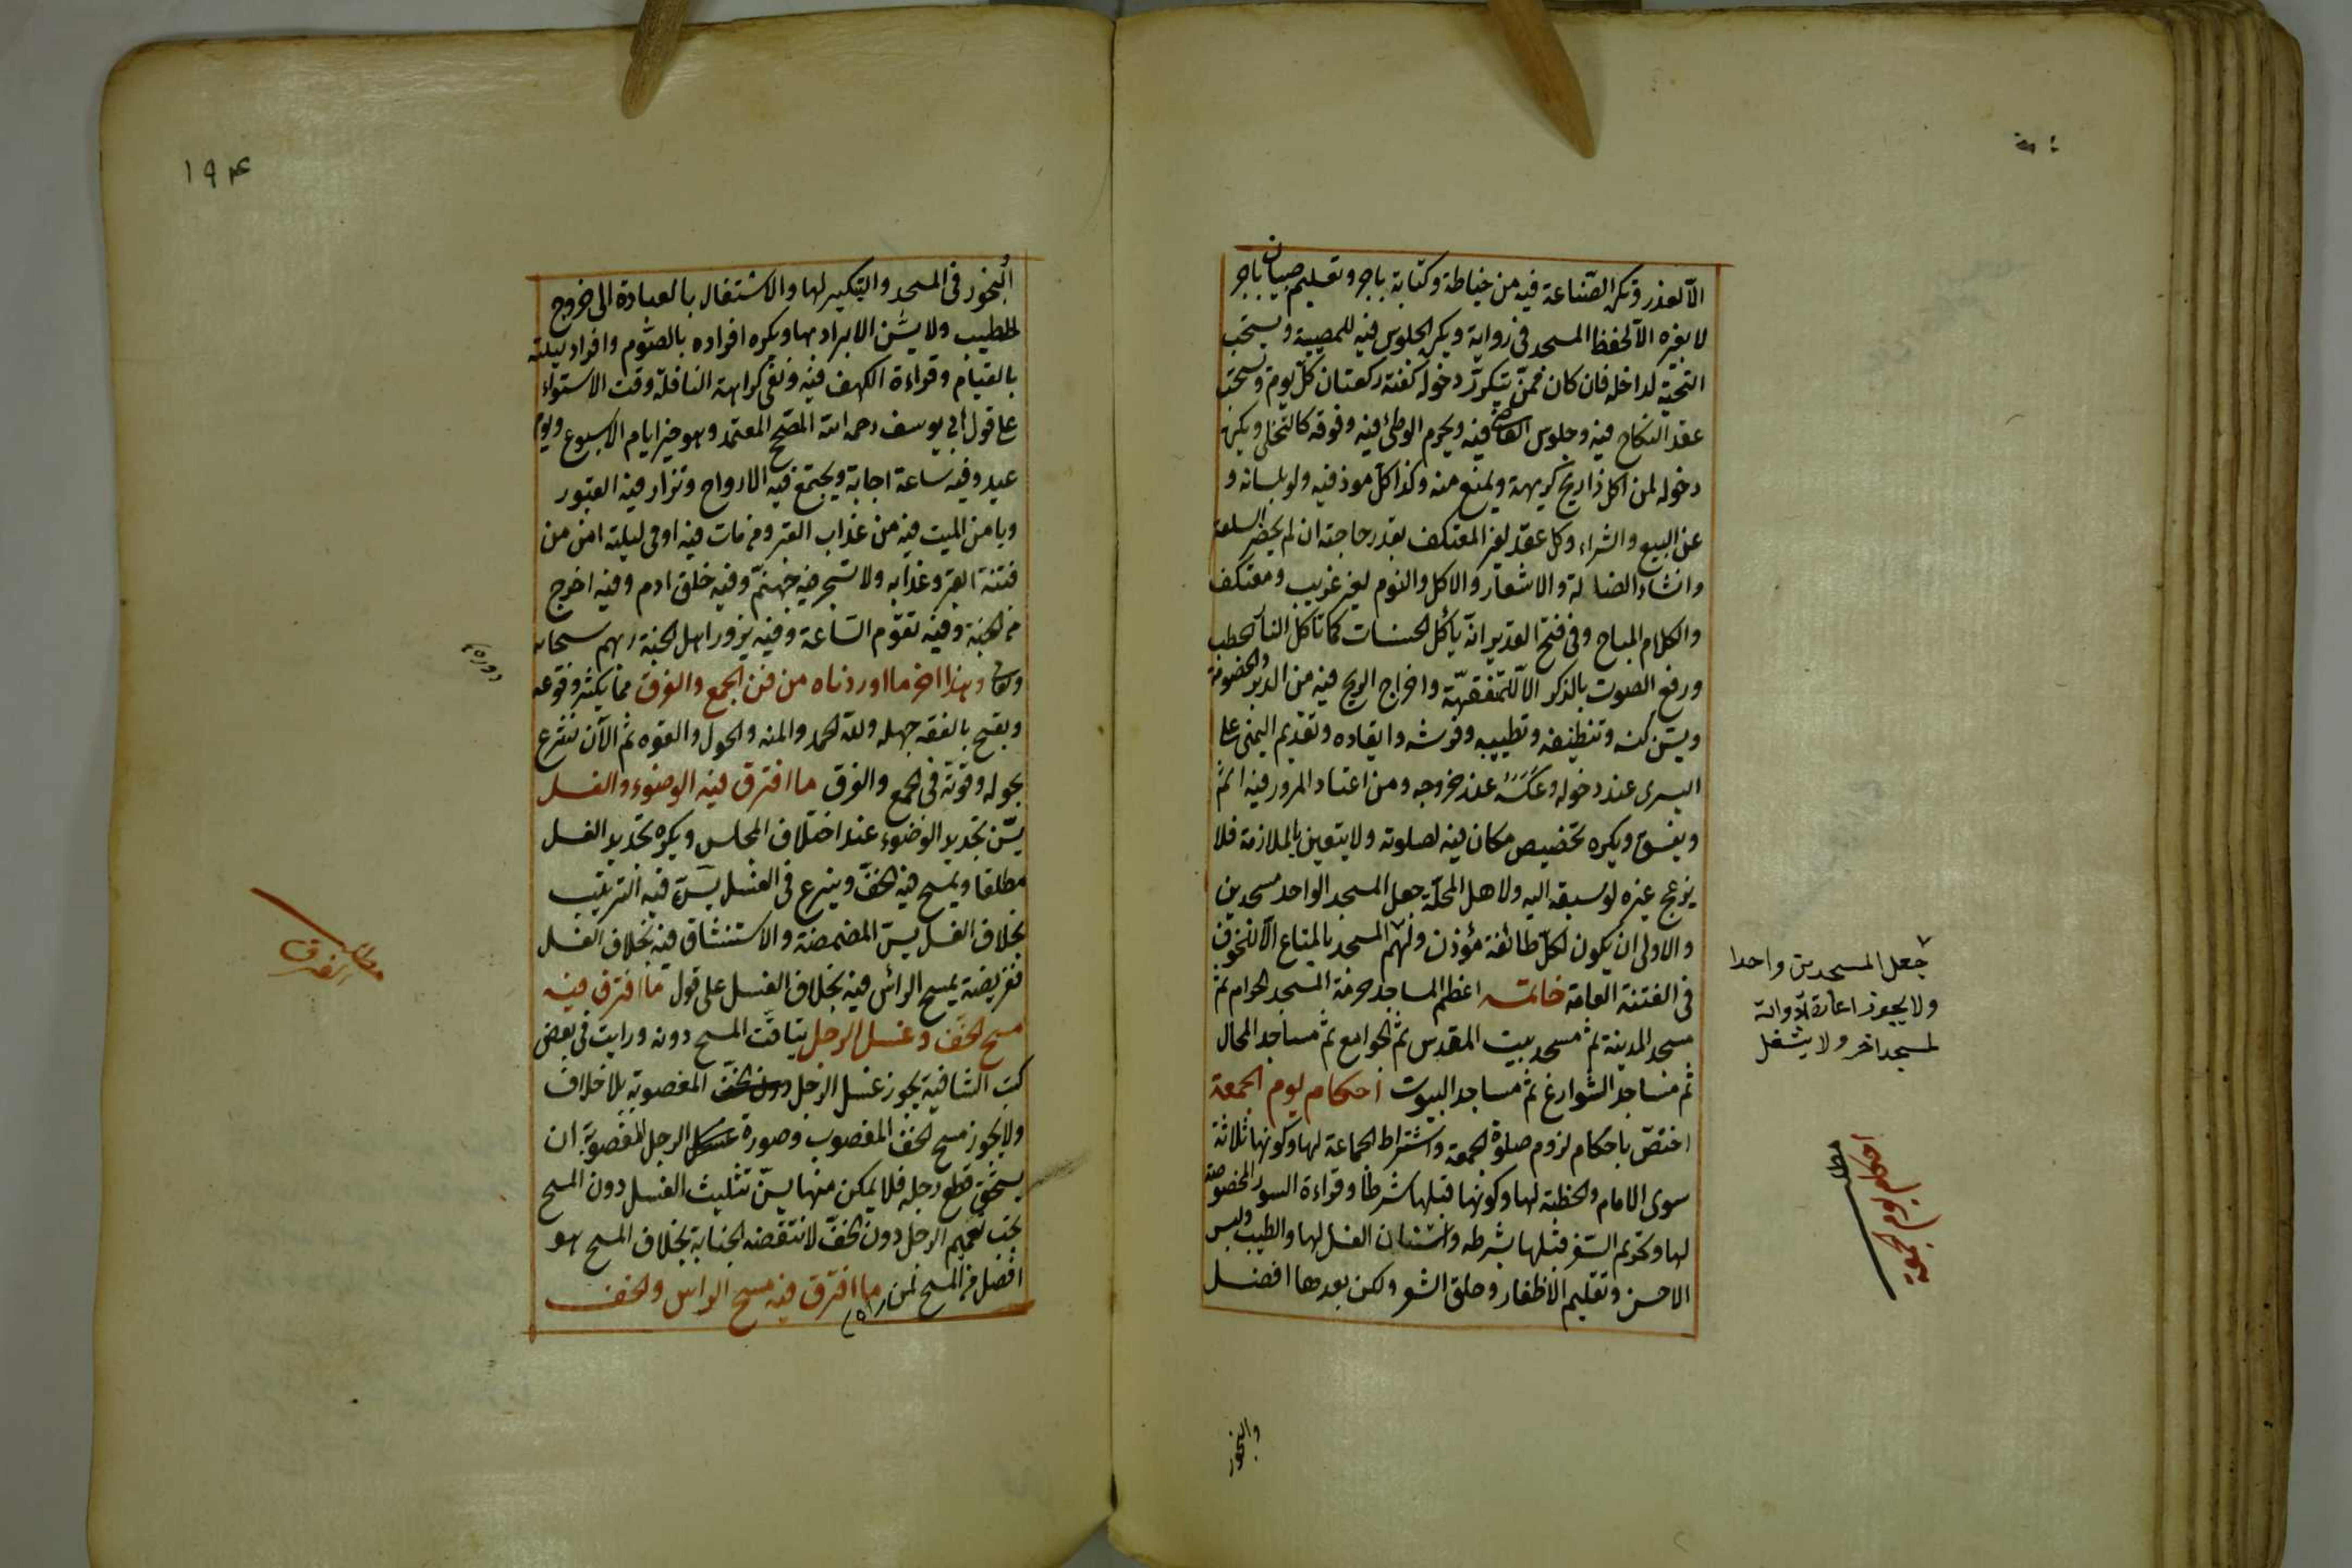 الا لعذر وتكره الصناعة فيه من خياطة وكتابة باجر وتعليم صبيان باجر
لا بغيره الا لحفظ المسجد في رواية ويكره الجلوس فيه للمصيبة ويستحب
التحية لداخله فان كان ممن يتكرر دخوله كفته ركعتان كل يوم ويستحب
عقد النكاح فيه وجلوس القاضي فيه ويحرم الوطئ فيه وفوقه كالتخلي ويكره
دخوله لمن اكل ذا ريح كريهة ويمنع منه وكذا كل موذ فيه ولو بلسانه و
عن البيع والشراء وكل عقد لغير المعتكف بقدر حاجته ان لم يحضر السلعة
وانشاد الضالة والاشعار والاكل والنوم لغير غريب ومعتكف
والكلام المباح وفي فتح القدير انه يأكل الحسنات كما تأكل النار الحطب
ورفع الصوت بالذكر الا للمتفقهة واخراج الريح فيه من الدبر والخصومة
ويسن كنسه وتنظيفه وتطييبه وفرشه وايقاده وتقديم اليمنى على
اليسرى عند دخوله وعكسه عند خروجه ومن اعتاد المرور فيه اثم
ويفسق ويكره تخصيص مكان فيه لصلوته ولا يتعين بالملازمة فلا
يزعج غيره لو سبقه اليه ولاهل المحلة جعل المسجد الواحد مسجدين
والاولى ان يكون لكل طائفة مؤذن ولهم المسجد بالمتاع الا للخوف
في الفتنة العامة خاتمة اعظم المساجد حرمة المسجد الحرام ثم
مسجد المدينة ثم مسجد بيت المقدس ثم الجوامع ثم مساجد المحال
ثم مساجد الشوارع ثم مساجد البيوت احكام يوم الجمعة
اختص باحكام لزوم صلوة الجمعة واشتراط الجماعة لها وكونها ثلاثة
سوى الامام والخطبة لها وكونها قبلها شرطا وقراءة السور المخصوصة
لها وتحريم السفر قبلها بشرطه واستنان الغسل لها والطيب ولبس
الاحسن وتقليم الاظفار وحلق الشعر ولكن بعدها افضل
جعل المسجدين واحدا
ولا يجوز اعارة ادواته
لمسجد اخر ولا يشغل
والبخور
١٩٤
البخور في المسجد والتبكير لها والاشتغال بالعبادة الى خروج
الخطيب ولا يسن الابراد بها ويكره افراده بالصوم وافراد ليلته
بالقيام وقراءة الكهف فيه ونفي كراهة النافلة وقت الاستواء
على قول ابي يوسف رحمه الله المصحح المعتمد وهو خير ايام الاسبوع ويوم
عيد وفيه ساعة اجابة ويجتمع فيه الارواح وتزار فيه القبور
ويامن الميت فيه من عذاب القبر ومن مات فيه او في ليلته امن من
فتنة القبر وعذابه ولا تسجر فيه جهنم وفيه خلق ادم وفيه اخرج
من الجنة وفيه تقوم الساعة وفيه يزور اهل الجنة ربهم سبحانه
وتعالى وهذا اخر ما اوردناه من فن الجمع والفرق مما يكثر وقوعه
ويقبح بالفقيه جهله ولله الحمد والمنه والحول والقوه ثم الآن نشرع
بحوله وقوته في الجمع والفرق ما افترق فيه الوضوء والغسل
يسن تجديد الوضوء عند اختلاف المجلس ويكره تجديد الغسل
مطلقا ويمسح فيه الخف وينزع في الغسل يسن فيه الترتيب
بخلاف الغسل يسن المضمضة والاستنشاق فيه بخلاف الغسل
ففريضة يمسح الرأس فيه بخلاف الغسل على قول ما افترق فيه
مسح الخف وغسل الرجل يتاقت المسح دونه ورايت في بعض
كتب الشافية يجوز غسل الرجل المغصوبة بلا خلاف
ولا يجوز مسح الخف المغصوب وصورة الرجل المغصوبة ان
يستحق قطع رجله فلا يمكن منها يسن تثليث الغسل دون المسح
يجب تعميم الرجل دون الخف لا تنقضه الجنابة بخلاف المسح هو
افضل من المسح لمن راه ما افترق فيه مسح الراس والخف